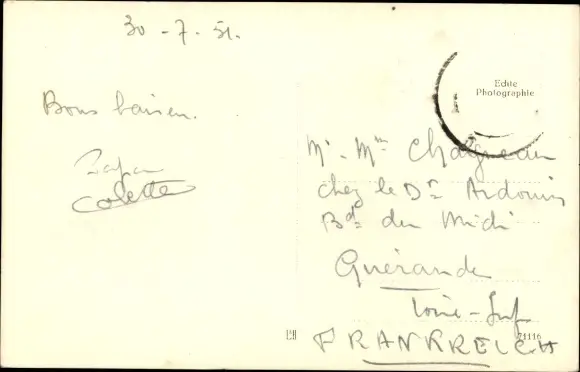 30-7-51.
Bons baisers.
Papa
Colette
Echte
Photographie
Mr. Mme Chaigneau
chez le Dr Ardouin
Bd du Midi
Guérande
Loire-Inf
FRANKREICH
21116